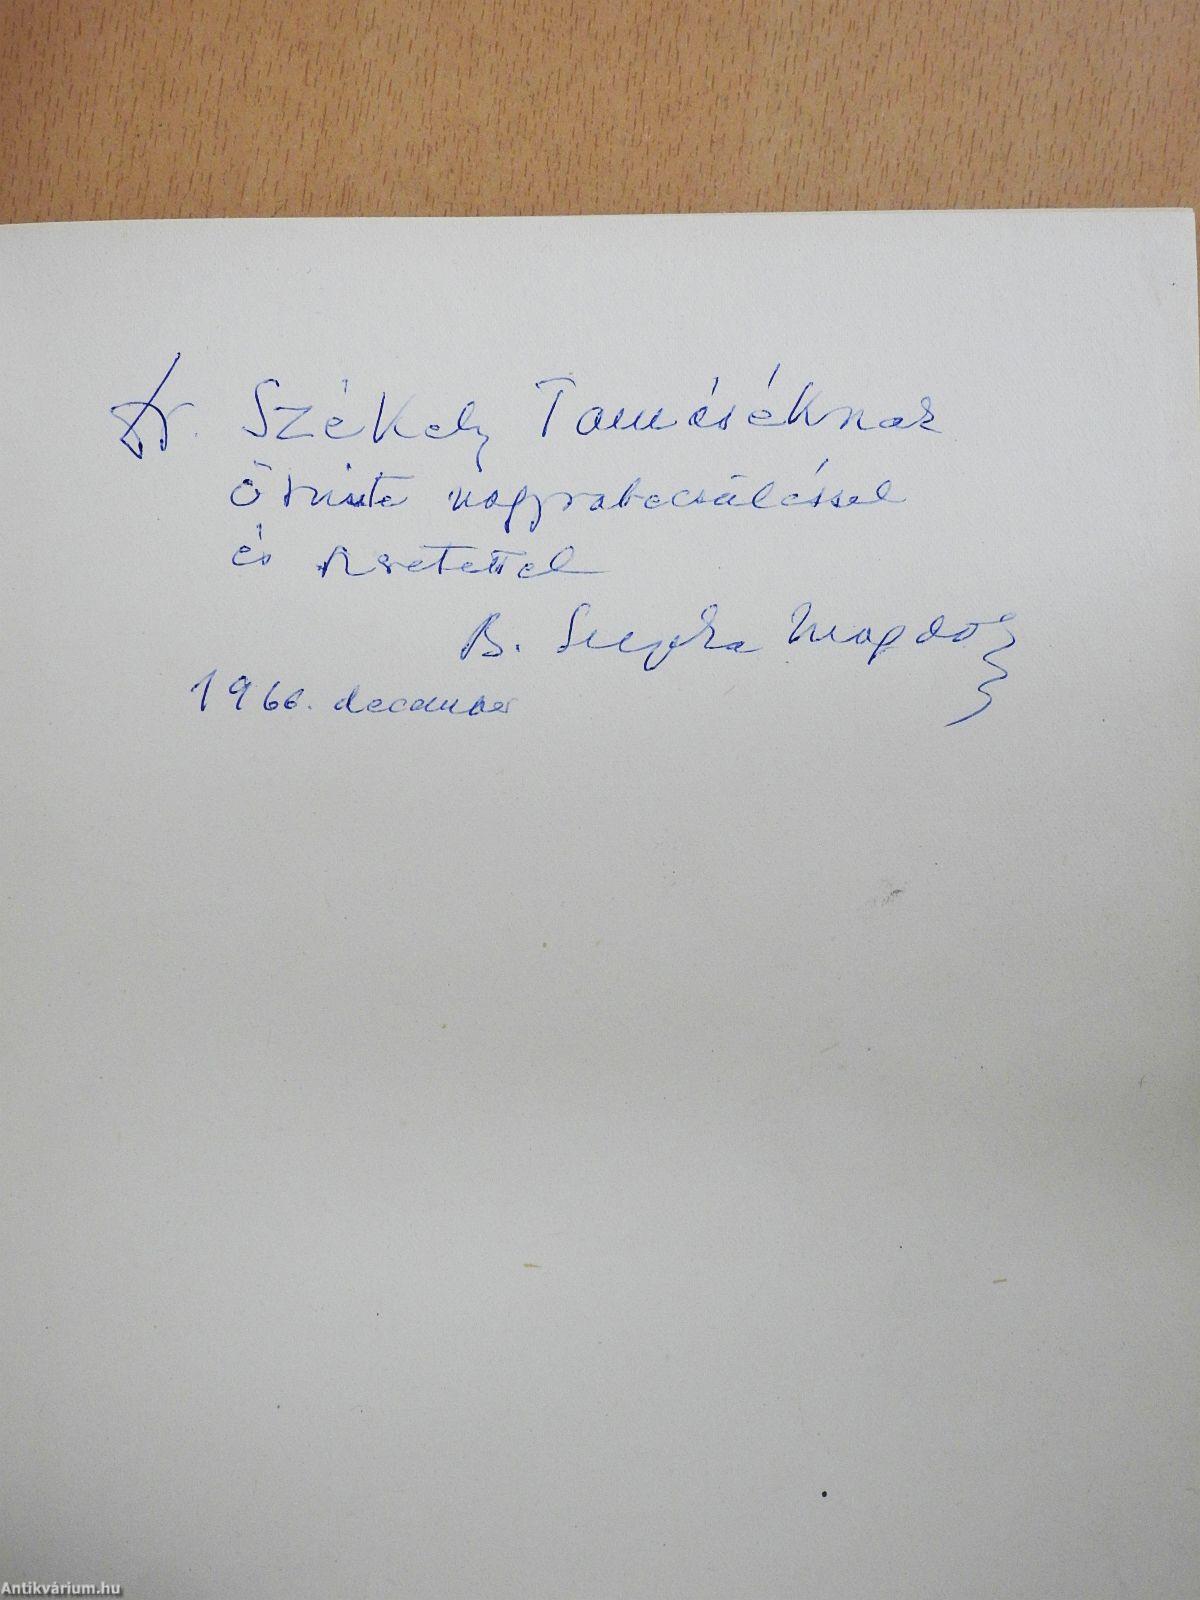 Dr. Székely Tamáséknak
őszinte nagyrabecsüléssel
és szeretettel
B. Magda
1966. december
Antikvárium.hu